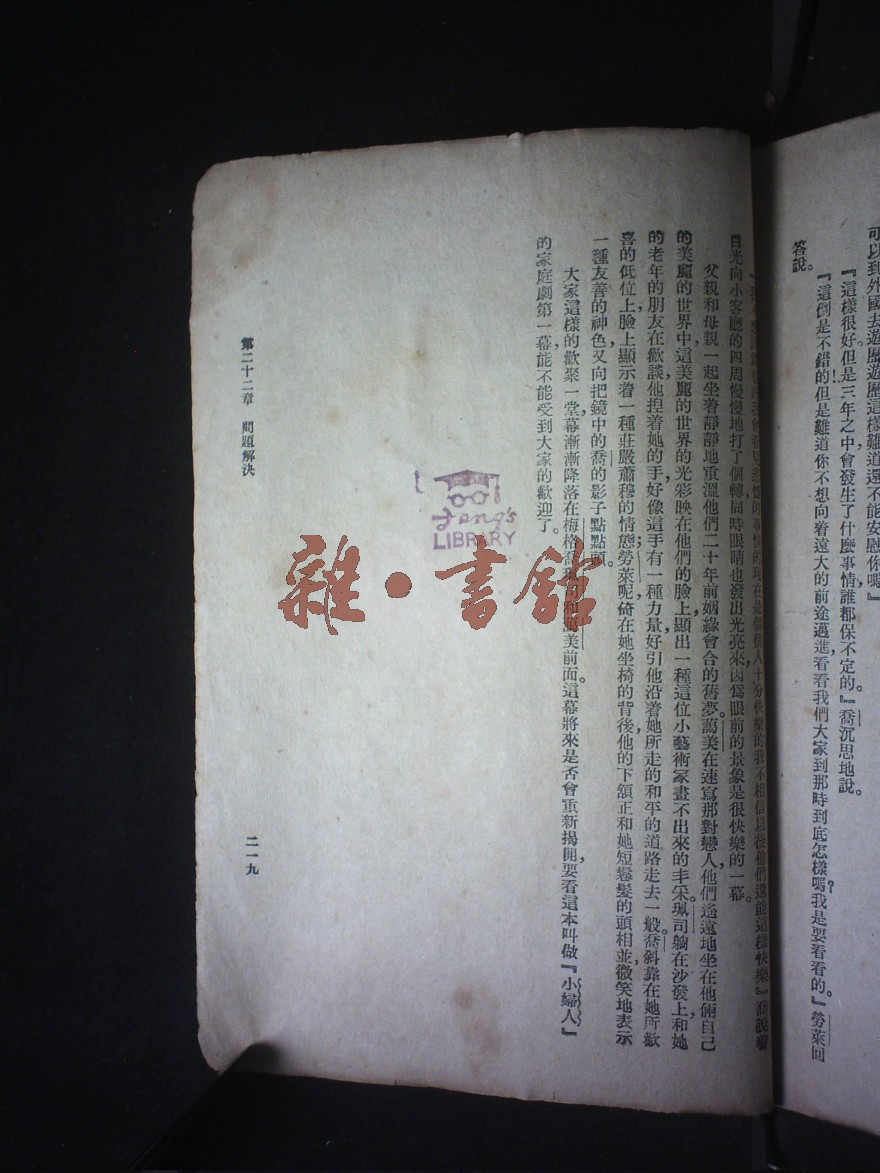 可以到外國去遊歷遊歷這樣難道還不能安慰你嗎』
『這樣很好但是三年之中會發生了什麼事情誰都保不定的。』喬沉思地說。
『這倒是不錯的但是難道你不想向着遠大的前途邁進看看我們大家到那時到底怎樣嗎?我是要看看的。』勞萊回
答說。
的現在是個個人十分快樂的我不相信以後他們還能這樣快樂』喬說着
目光向小客廳的四周慢慢地打了個轉同時眼睛也發出光亮來因爲眼前的景象是很快樂的一幕。
父親和母親一起坐着靜靜地重溫他們二十年前姻緣會合的舊夢。萬美在速寫那對戀人他們遙遠地坐在他倆自己
的美麗的世界中,這美麗的世界的光彩映在他們的臉上顯出一種這位小藝術家畫不出來的丰采。珮司躺在沙發上和她
的老年的朋友在歡談他捏着她的手好像這手有一種力量好引他沿着她所走的和平的道路走去一般。喬斜靠在她所歡
喜的低位上,臉上顯示着一種莊嚴蕭穆的情態;勞萊呢倚在她坐椅的背後,他的下頷正和她短鬈髮的頭相並,微笑地表示
一種友善的神色,又向把鏡中的喬的影子點點頭。
大家這樣的歡聚一堂,幕漸漸降落在梅格喬珮司和萬美前面。這幕將來是否會重新揭開,要看這本叫做『小婦人』
的家庭劇第一幕,能不能受到大家的歡迎了。
第二十二章 問題解決
二一九
Jeng's
LIBRARY
雜·書館